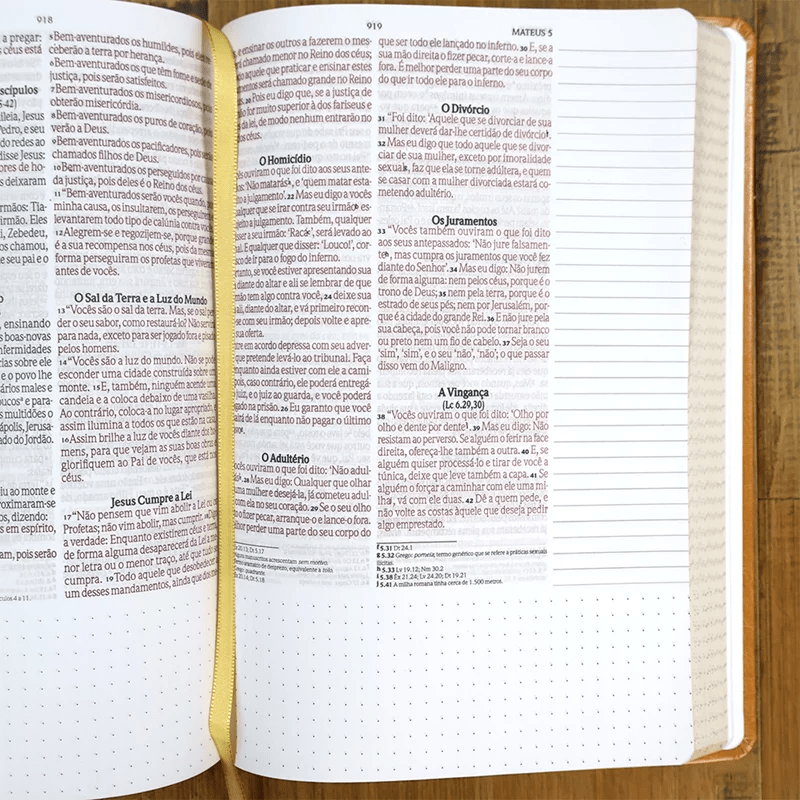 918
a pregar:
céus está
scípulos
5-42)
lileia, Jesus
Pedro, e seu
do redes ao
disse Jesus:
ores de ho-
s deixaram
irmãos: Tia-
irmão. Eles
Zebedeu,
os chamou,
seu pai e o
ensinando
s boas-novas
enfermidades
ias sobre ele
e o povo lhe
ários males e
oucos e para-
s multidões o
ápolis, Jerusa-
do Jordão.
iu ao monte e
proximaram-se
os, dizendo:
s em espírito,
m, pois serão
culos 4 a 11.
5Bem-aventurados os humildes, pois eles
ceberão a terra por herança.
Bem-aventurados os que têm fome e sede de
justiça, pois serão satisfeitos.
7Bem-aventurados os misericordiosos, pois
obterão misericórdia.
Bem-aventurados os puros de coração, pois
verão a Deus.
9Bem-aventurados os pacificadores, pois serão
chamados filhos de Deus.
10Bem-aventurados os perseguidos por
da justiça, pois deles é o Reino dos céus.
11"Bem-aventurados serão vocês quando, por
minha causa, os insultarem, os perseguirem
levantarem todo tipo de calúnia contra
12Alegrem-se e regozijem-se, porque grande
é a sua recompensa nos céus, pois da mesma
forma perseguiram os profetas que viveram
antes de vocês.
O Sal da Terra e a Luz do Mundo
13"Vocês são o sal da terra. Mas, se o sal per-
der o seu sabor, como restaurá-lo? Não servirá
para nada, exceto para ser jogado fora e pisado
pelos homens.
14"Vocês são a luz do mundo. Não se pode
esconder uma cidade construída sobre um
monte. 15E, também, ninguém acende uma
candeia e a coloca debaixo de uma vasilha.
Ao contrário, coloca-a no lugar apropriado, e
assim ilumina a todos os que estão na casa.
16Assim brilhe a luz de vocês diante dos ho-
mens, para que vejam as suas boas obras e
glorifiquem ao Pai de vocês, que está nos
céus.
Jesus Cumpre a Lei
17"Não pensem que vim abolir a Lei ou os
Profetas; não vim abolir, mas cumprir.
a verdade: Enquanto existirem céus e terra,
de forma alguma desaparecerá da Lei a me-
nor letra ou o menor traço, até que tudo se
cumpra. 19Todo aquele que desobedecer a
um desses mandamentos, ainda que dos me-
919
MATEUS 5
e ensinar os outros a fazerem o mes-
chamado menor no Reino dos céus;
aquele que praticar e ensinar estes
será chamado grande no Reino
20 Pois eu digo que, se a justiça de
for muito superior à dos fariseus e
da lei, de modo nenhum entrarão no
céus.
O Homicídio
ouviram o que foi dito aos seus ante-
'Não matarás, e 'quem matar esta-
a julgamento'. 22 Mas eu digo a vocês
qualquer que se irar contra seu irmão es-
a julgamento. Também, qualquer
a seu irmão: 'Racá', será levado ao
E qualquer que disser: 'Louco!', cor-
de ir para o fogo do inferno.
se você estiver apresentando sua
diante do altar e ali se lembrar de que
tem algo contra você, 24 deixe sua
ali, diante do altar, e vá primeiro recon-
com seu irmão; depois volte e apre-
oferta.
em acordo depressa com seu adver-
que pretende levá-lo ao tribunal. Faça
ainda estiver com ele a cami-
pois, caso contrário, ele poderá entregá-
juiz, e o juiz ao guarda, e você poderá
na prisão. 26 Eu garanto que você
de lá enquanto não pagar o último
O Adultério
ouviram o que foi dito: 'Não adul-
28 Mas eu digo: Qualquer que olhar
mulher e desejá-la, já cometeu adul-
com ela no seu coração. 29 Se o seu olho
o fizer pecar, arranque-o e lance-o fora.
perder uma parte do seu corpo do
20.13; Dt 5.17
manuscritos acrescentam sem motivo.
aramaico de desprezo, equivalente a tolo.
Grego: quadrante.
20.14; Dt 5.18
que ser todo ele lançado no inferno. 30 E, se a
sua mão direita o fizer pecar, corte-a e lance-a
fora. É melhor perder uma parte do seu corpo
do que ir todo ele para o inferno.
O Divórcio
31 "Foi dito: 'Aquele que se divorciar de sua
mulher deverá dar-lhe certidão de divórcio'f.
32 Mas eu digo que todo aquele que se divor-
ciar de sua mulher, exceto por imoralidade
sexualg, faz que ela se torne adúltera, e quem
se casar com a mulher divorciada estará co-
metendo adultério.
Os Juramentos
33 "Vocês também ouviram o que foi dito
aos seus antepassados: 'Não jure falsamen-
teh, mas cumpra os juramentos que você fez
diante do Senhor'. 34 Mas eu digo: Não jurem
de forma alguma: nem pelos céus, porque é o
trono de Deus; 35 nem pela terra, porque é o
estrado de seus pés; nem por Jerusalém, por-
que é a cidade do grande Rei. 36 E não jure pela
sua cabeça, pois você não pode tornar branco
ou preto nem um fio de cabelo. 37 Seja o seu
'sim', 'sim', e o seu 'não', 'não'; o que passar
disso vem do Maligno.
A Vingança
(Lc 6.29,30)
38 "Vocês ouviram o que foi dito: 'Olho por
olho e dente por dente'i. 39 Mas eu digo: Não
resistam ao perverso. Se alguém o ferir na face
direita, ofereça-lhe também a outra. 40 E, se
alguém quiser processá-lo e tirar de você a
túnica, deixe que leve também a capa. 41 Se
alguém o forçar a caminhar com ele uma mi-
lhaj, vá com ele duas. 42 Dê a quem pede, e
não volte as costas àquele que deseja pedir
algo emprestado.
f 5.31 Dt 24.1
g 5.32 Grego: porneia; termo genérico que se refere a práticas sexuais
ilícitas.
h 5.33 Lv 19.12; Nm 30.2
i 5.38 Êx 21.24; Lv 24.20; Dt 19.21
j 5.41 A milha romana tinha cerca de 1.500 metros.